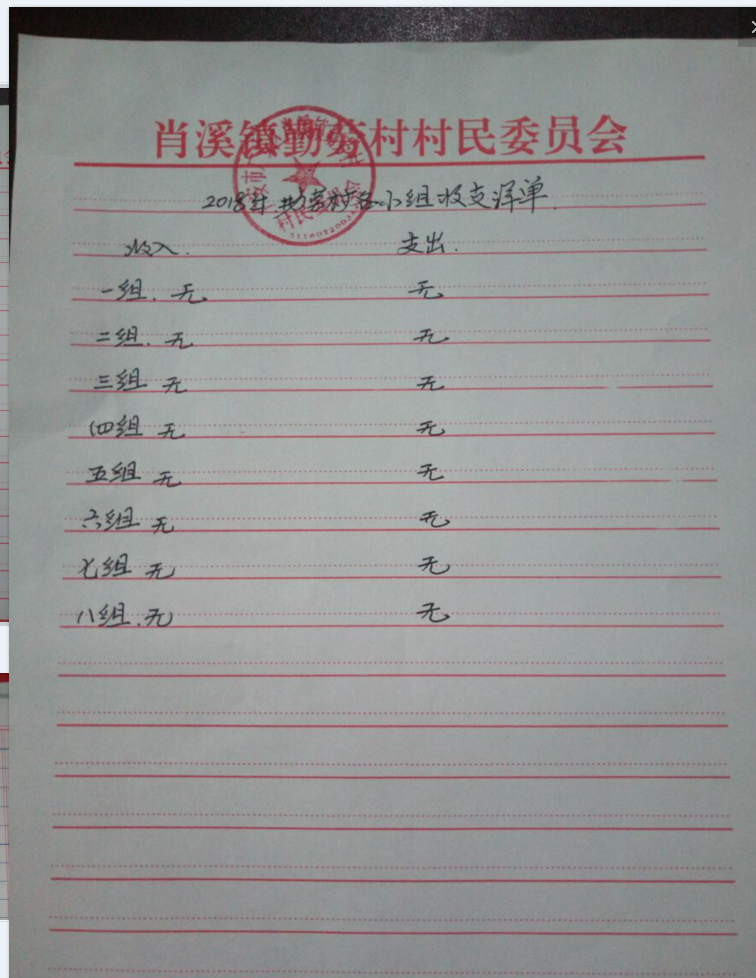 肖溪镇勤劳村村民委员会
2018年勤劳村各小组收支详单
收入. 支出.
一组. 无 无
二组. 无 无
三组 无 无
四组 无 无
五组 无 无
六组 无 无
七组 无 无
八组. 无 无
村民委员会